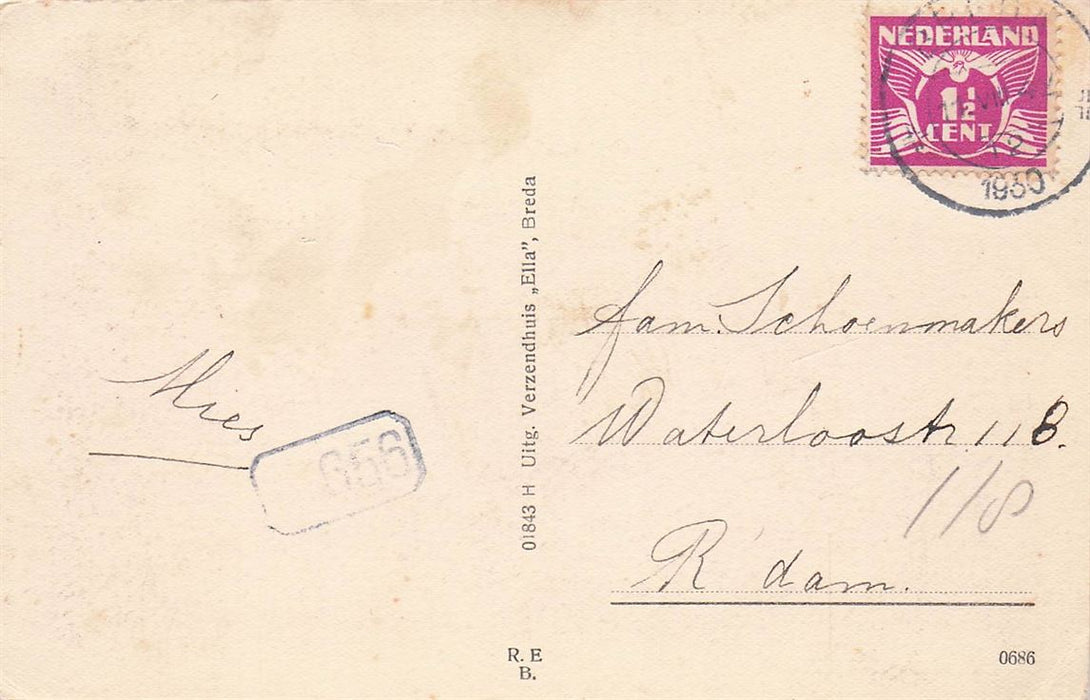 NEDERLAND
1½
CENT
12
1930
Mies
656
01843 H Uitg. Verzendhuis „Ella”, Breda
fam. Schoenmakers
Waterloostr 118.
118
R'dam.
R. E
B.
0686